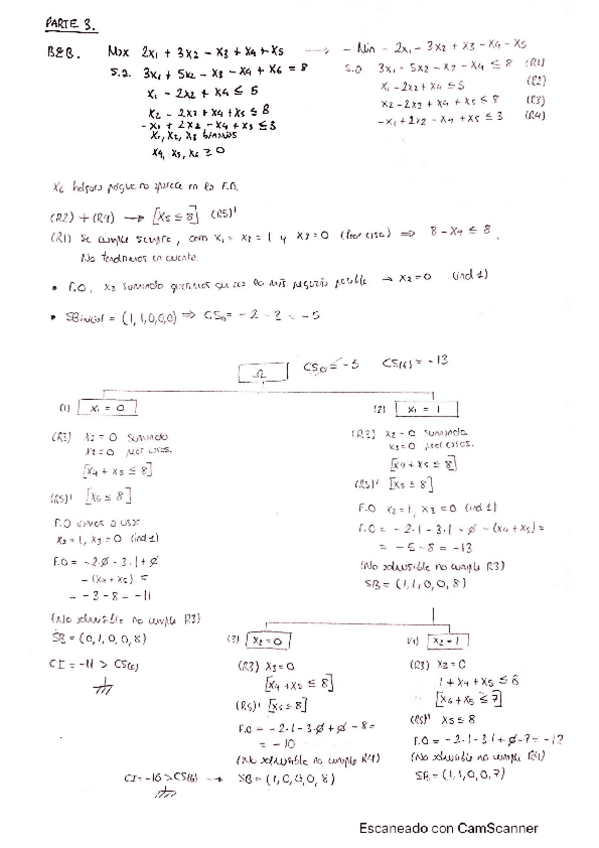 PARTE 3.
B&B. Max 2x1 + 3x2 - x3 + x4 + x5 → - Min - 2x1 - 3x2 + x3 - x4 - x5
s.a. 3x1 + 5x2 - x3 - x4 + x6 = 8 s.a 3x1 + 5x2 - x3 - x4 ≤ 8 (R1)
x1 - 2x2 + x4 ≤ 5 x1 - 2x2 + x4 ≤ 5 (R2)
x2 - 2x3 + x4 + x5 ≤ 8 x2 - 2x3 + x4 + x5 ≤ 8 (R3)
-x1 + 2x2 - x4 + x5 ≤ 3 -x1 + 2x2 - x4 + x5 ≤ 3 (R4)
x1, x2, x3 binarios
x4, x5, x6 ≥ 0
x6 holgura porque no aparece en la F.O.
(R2) + (R4) → [x5 ≤ 8] (R5)'
(R1) Se cumple siempre, con x1 = x2 = 1 y x3 = 0 (Peor caso) ⇒ 8 - x4 ≤ 8.
No tendremos en cuenta.
• F.O. x3 sumando queremos que sea lo más pequeño posible → x3 = 0 (ind 1)
• SB inicial = (1,1,0,0,0) ⇒ CS0 = - 2 - 3 = -5
Ω CS0 = -5 CS(6) = -13
(1) x1 = 0 (2) x1 = 1
(R3) x2 = 0 sumando (R3) x2 = 0 sumando
x3 = 0 peor caso. x3 = 0 peor caso.
[x4 + x5 ≤ 8] [x4 + x5 ≤ 8]
(R5)' [x5 ≤ 8] (R5)' [x5 ≤ 8]
F.O vamos a usar F.O x2 = 1, x3 = 0 (ind 1)
x2 = 1, x3 = 0 (ind 1) F.O = - 2·1 - 3·1 + 0 - (x4 + x5) =
F.O = - 2·0 - 3·1 + 0 = -5 - 8 = -13
- (x4 + x5) = (No soluible no cumple R3)
= -3 - 8 = -11 SB = (1,1,0,0,8)
(No soluible no cumple R3)
SB = (0,1,0,0,8) (3) x2 = 0 (4) x2 = 1
CI = -11 > CS(6) (R3) x3 = 0 (R3) x3 = 0
[x4 + x5 ≤ 8] 1 + x4 + x5 ≤ 8
(R5)' [x5 ≤ 8] [x4 + x5 ≤ 7]
F.O = - 2·1 - 3·0 + 0 - 8 = (R5)' x5 ≤ 8
= -10 F.O = - 2·1 - 3·1 + 0 - 7 = -12
(No soluible no cumple R4) (No soluible no cumple R4)
CI = -10 > CS(6) → SB = (1,0,0,0,8) SB = (1,1,0,0,7)
Escaneado con CamScanner